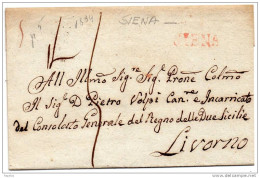 1804
SIENA
SIENA
All Illmo Sigre Sig. Prone Colmo
Il Sige D Pietro Volpi Canre Incaricato
dal Consolato Generale del Regno delle Due Sicilie
Livorno